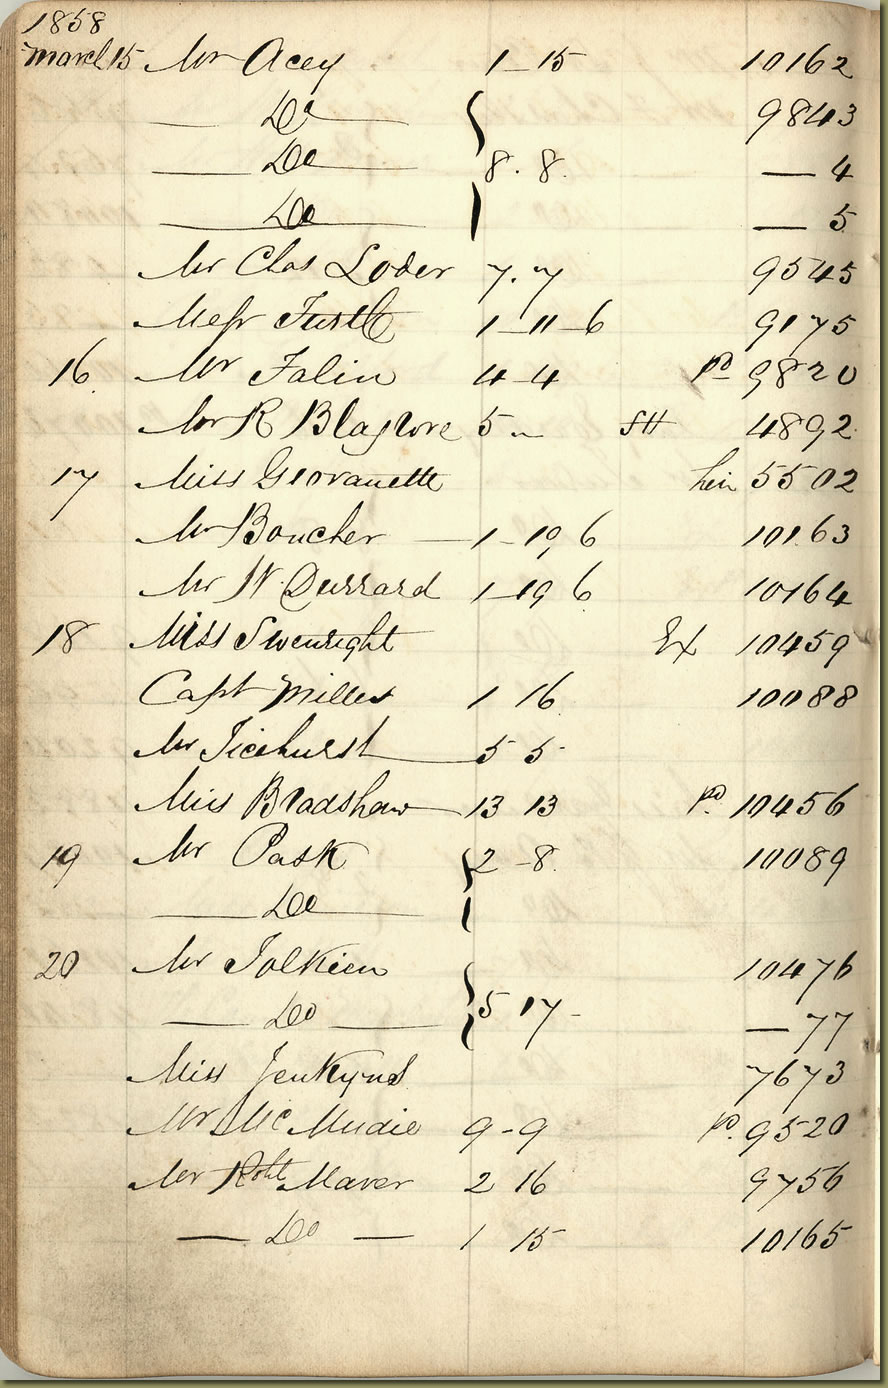 1858
March 15 Mr Acey 1 – 15 10162
— Do — 9843
— Do — 8 . 8 . — 4
— Do — — 5
Mr Chas Loder 7 . 7 9545
Messr Turtle 1 – 11 – 6 9175
16 Mr Falin 4 – 4 Pd 9820
Mr R Blagrove 5 " – SH 4892
17 Miss Geovanette 5502
Mr Boucher — 1 – 19 , 6 10163
Mr W. Durrard 1 – 19 6 10164
18 Miss Swenright Ex 10459
Capt Milles 1 16 10088
Mr Ticehurst 5 5
Miss Bradshaw 13 13 Pd. 10456
19 Mr Pask 2 – 8. 10089
— Do —
20 Mr Tolkien 10476
— Do — 5 17 – — 77
Miss Jenkyns 7673
Mr Mc Mudie 9 – 9 Pd. 9520
Mr Robt Maver 2 16 9756
— Do — 1 15 10165